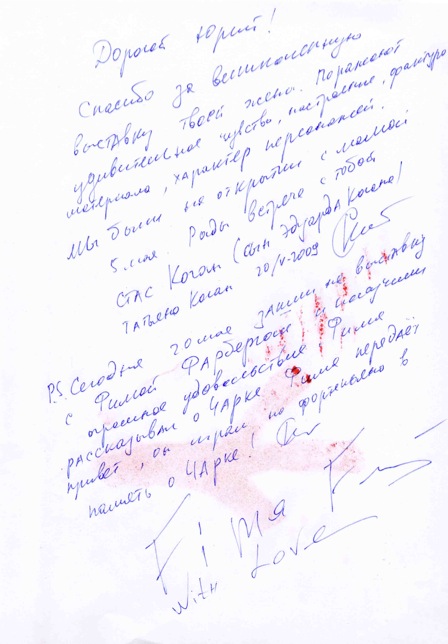 Дорогой Юрий!
Спасибо за великолепную
выставку твоей жены. Поражают
удивительное чувство, настроение, фактура
материала, характер персонажей.
Мы были на открытии с мамой
5 мая. Рады встрече с тобой
Стас Коган (сын Эдуарда Когана)
Татьяна Коган 20/V-2009
P.S. Сегодня 20 мая зашли на выставку
с Фимой Фарбергом и получили
огромное удовольствие. Фиме
рассказывал о Чарке. Фима передаёт
привет, он играл на фортепьяно в
память о Чарке!
Fima
With Love